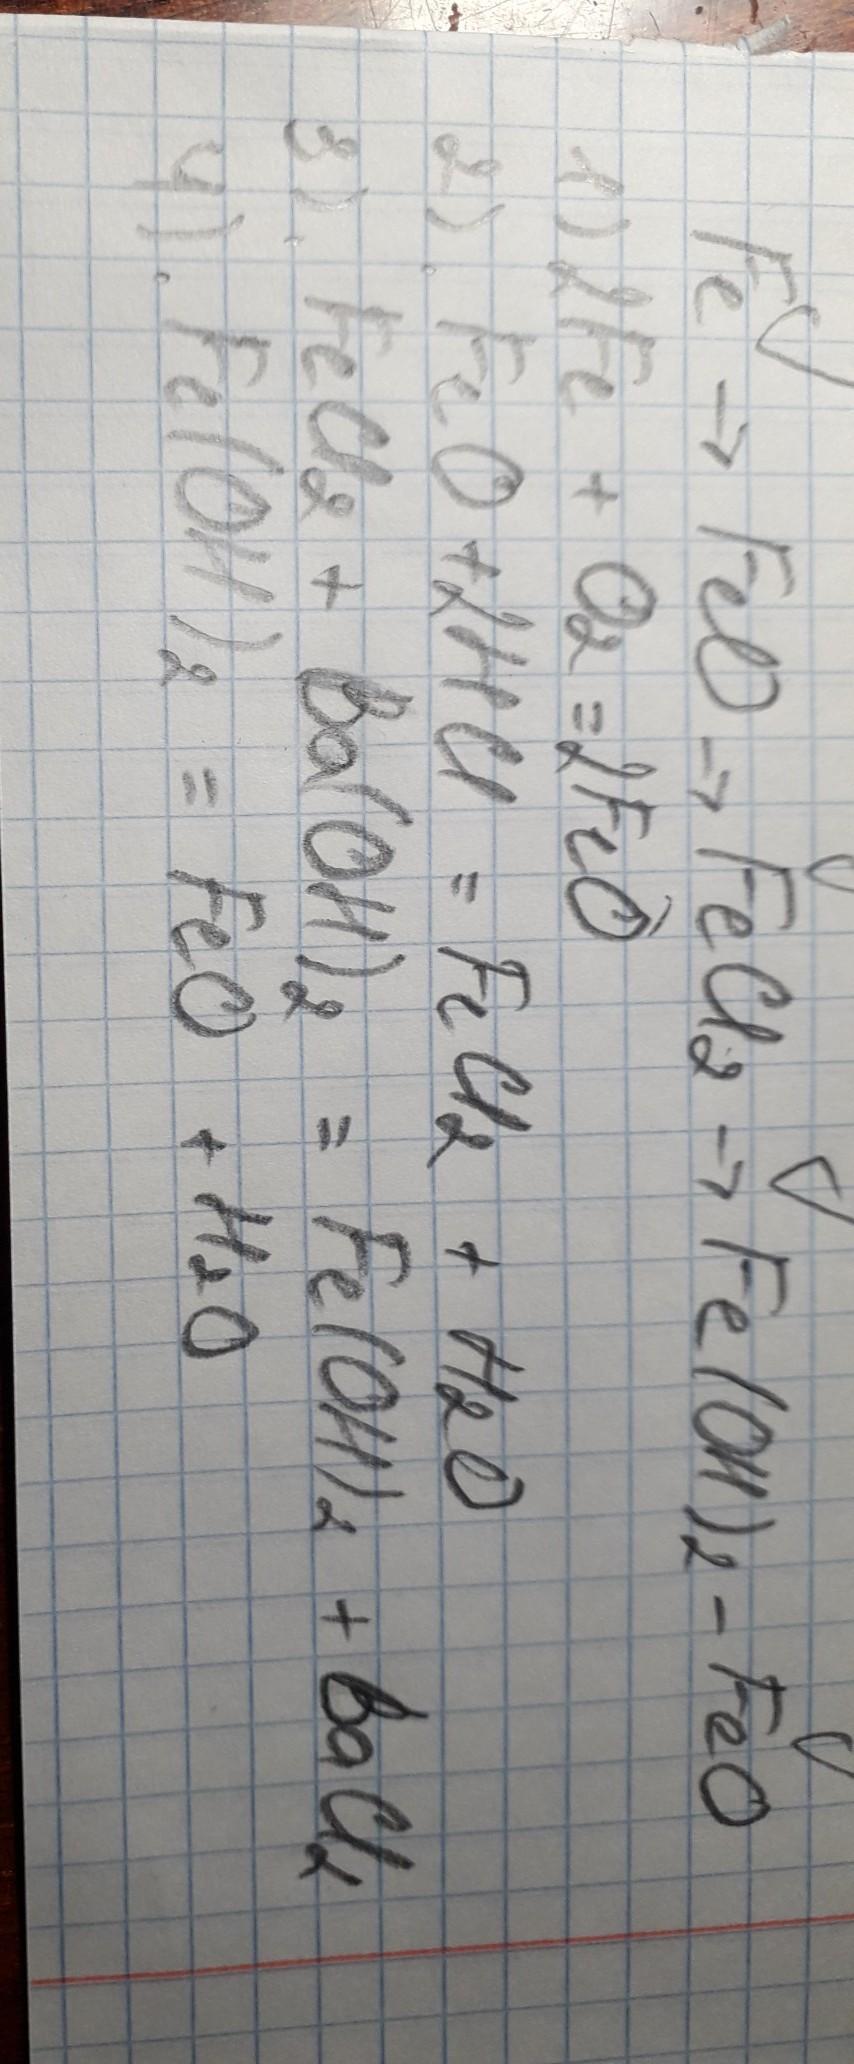 Fe → FeO → FeCl2 → Fe(OH)2 – FeO
1) 2Fe + O2 = 2FeO
2). FeO + 2HCl = FeCl2 + H2O
3). FeCl2 + Ba(OH)2 = Fe(OH)2 + BaCl2
4). Fe(OH)2 = FeO + H2O